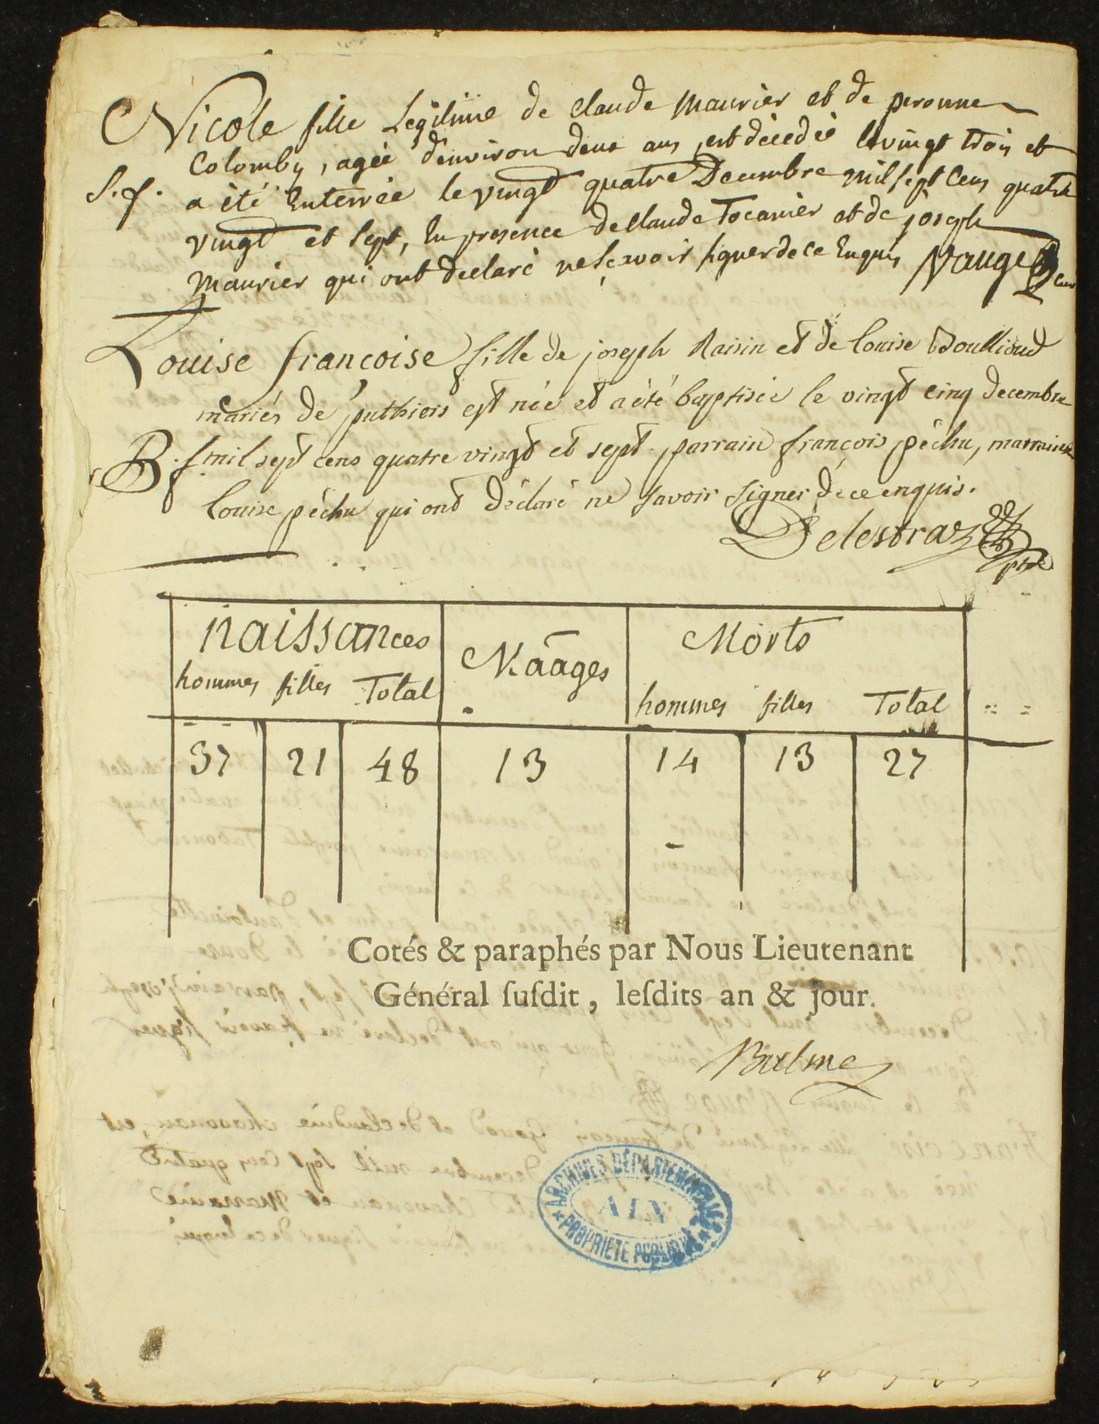 Nicole fille Legitime de claude Maurier et de peronne
Colomby, agée d'environ deux ans, est décedée le vingt trois et
S.f. a été Enterrée le vingt quatre Decembre mil sept Cens quatre
vingt et Sept, En presence de Claude Tocanier et de joseph
Maurier qui ont declaré ne Sçavoir signer de ce Enquis
Louise françoise fille de joseph Raisin et de Louise
mariés de puthiers est née et a été baptisée le vingt cinq decembre
B.f. mil sept cens quatre vingt et sept. parrain françois péchu, marraine
Louise péchu qui ont déclaré ne savoir signer de ce enquis.
Delestraz ptre
naissances Mãages Morts
hommes filles Total hommes filles Total
37 21 48 13 14 13 27
Cotés & paraphés par Nous Lieutenant
Général ſuſdit, leſdits an & jour.
Balme
ARCHIVES DÉPARTEMENTALES
AIN
PROPRIETE PUBLIQUE